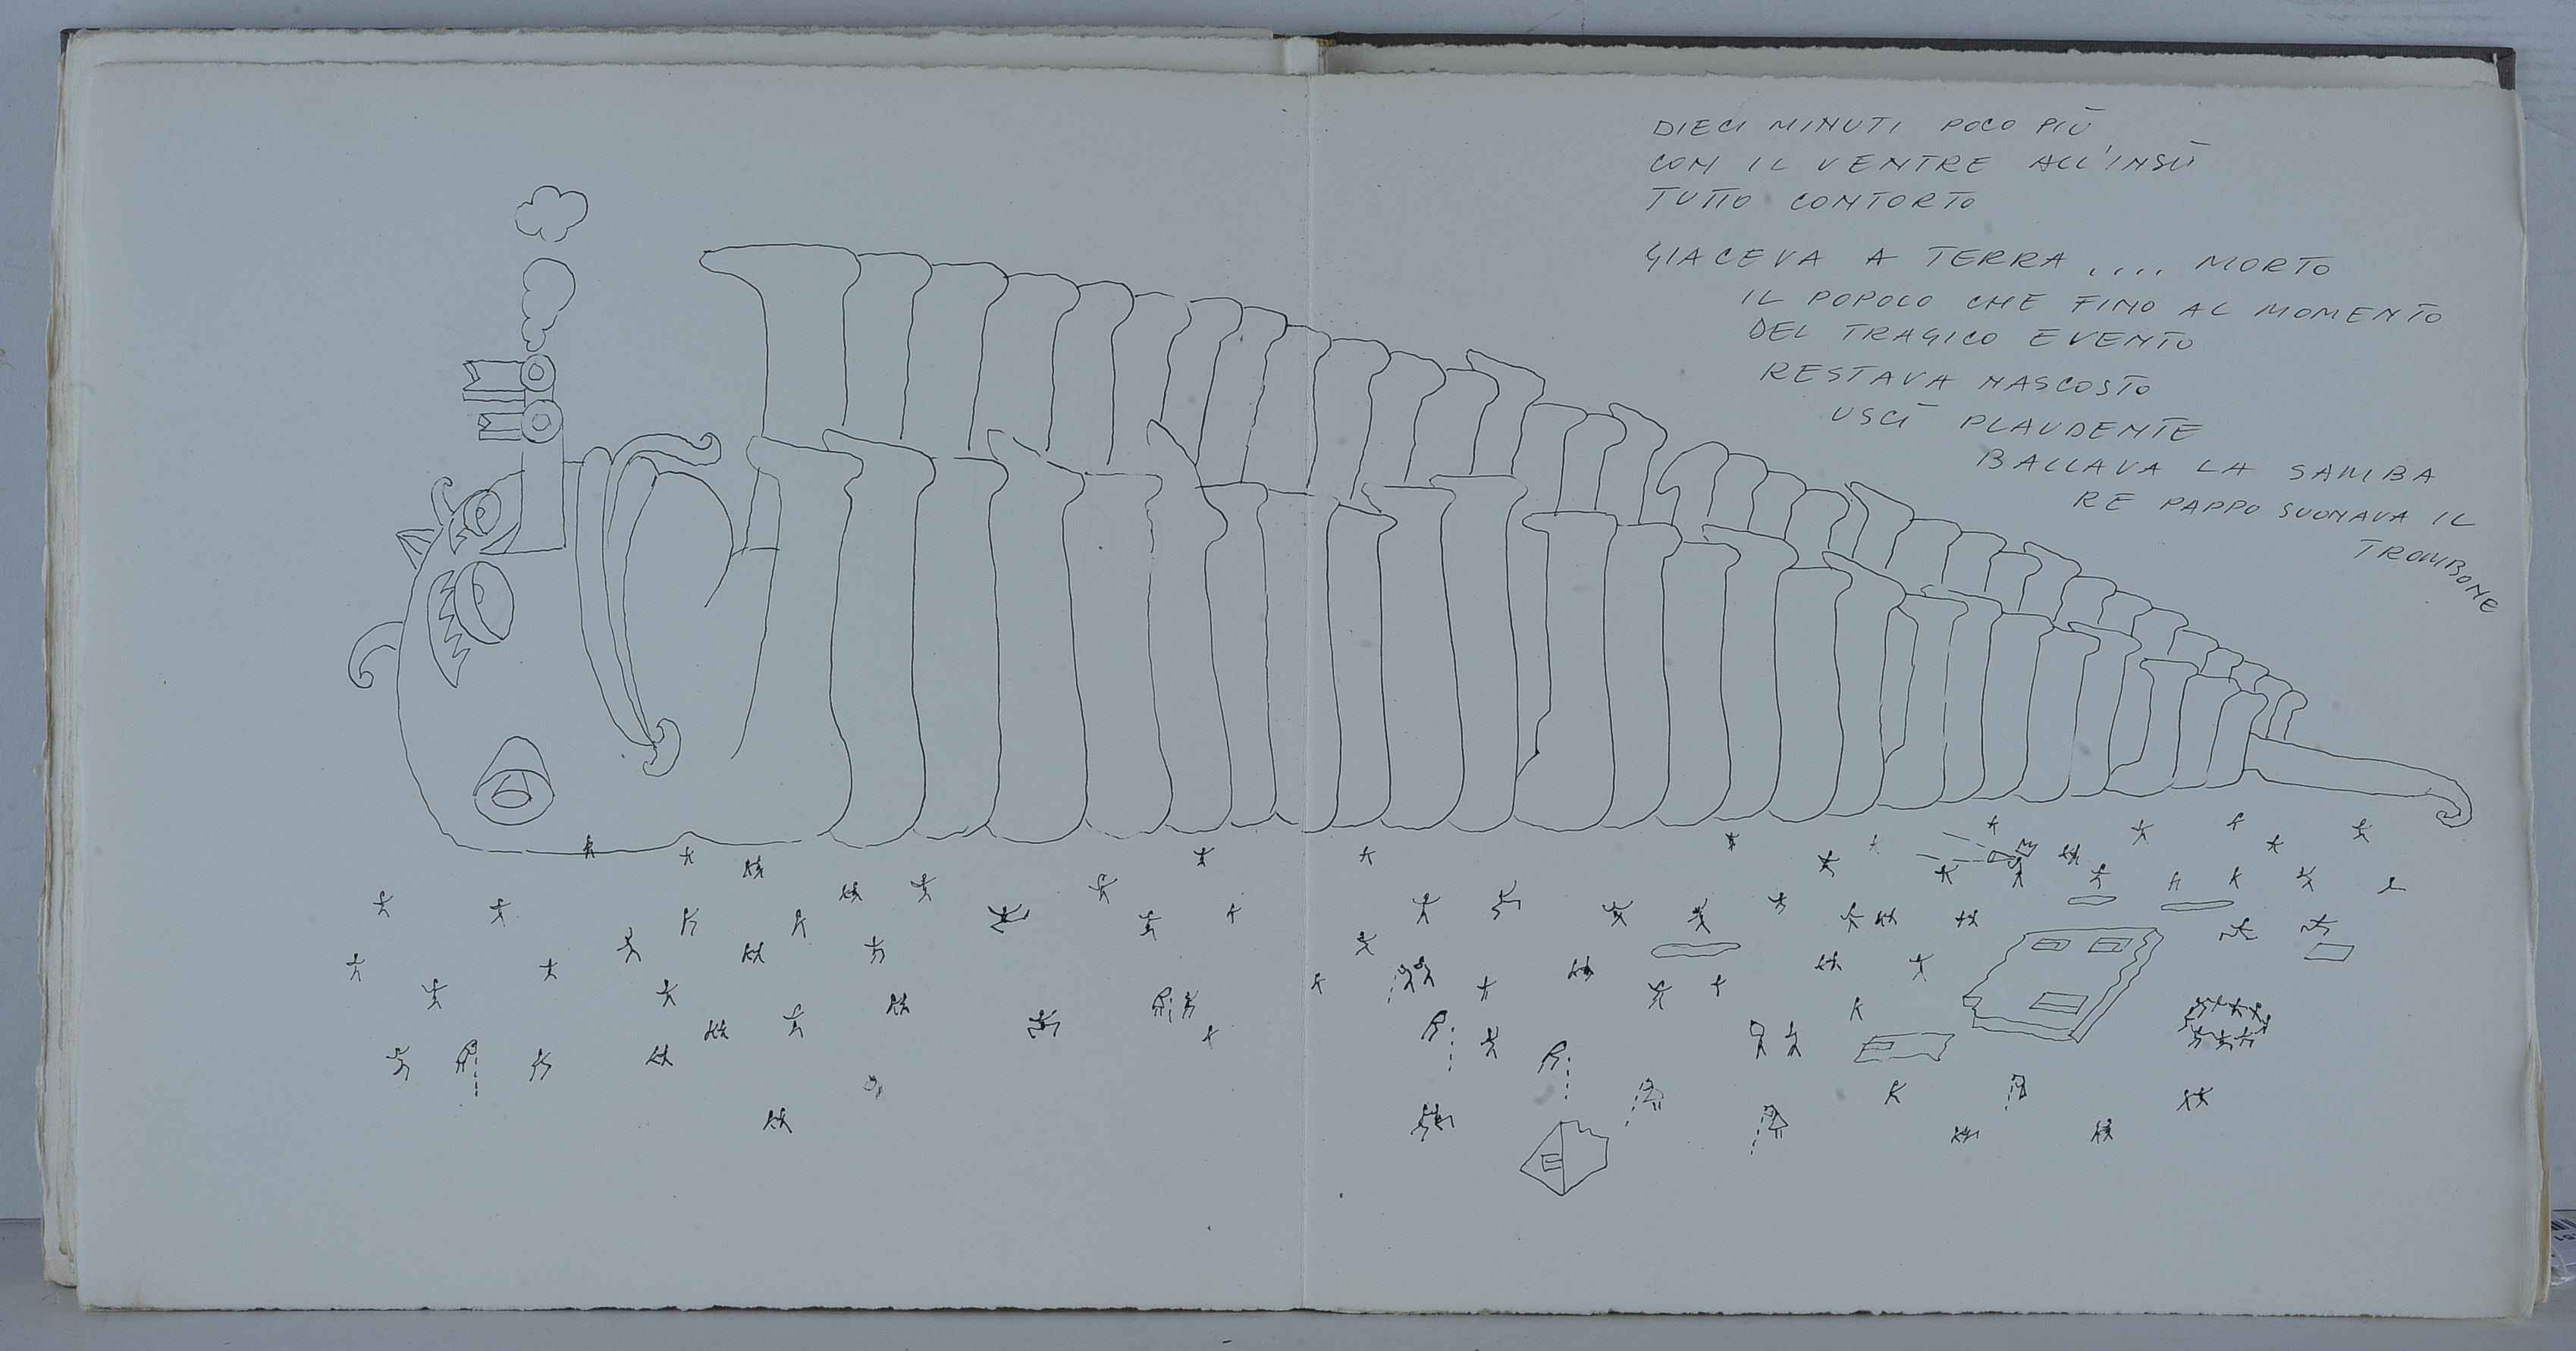 DIECI MINUTI POCO PIÙ
CON IL VENTRE ALL'INSÙ
TUTTO CONTORTO
GIACEVA A TERRA .... MORTO
IL POPOLO CHE FINO AL MOMENTO
DEL TRAGICO EVENTO
RESTAVA NASCOSTO
USCÌ PLAUDENTE
BALLAVA LA SAMBA
RE PAPPO SUONAVA IL
TROMBONE